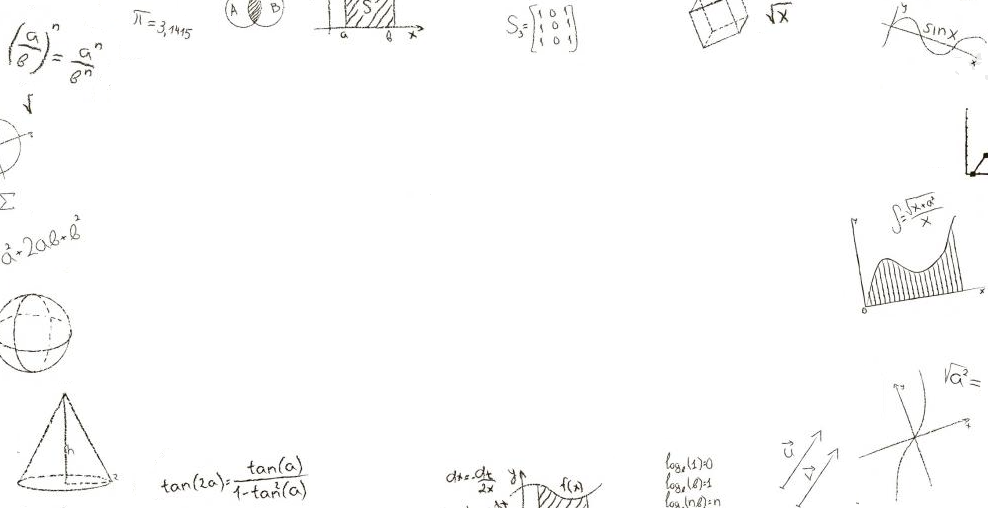 (a/b)ⁿ = aⁿ/bⁿ
π=3,1415
A B
S
a b x
S₃=[1 0 1
1 0 1
1 0 1]
√x
y sin x x
√
Σ
a²+2ab+b²
∫=√x+a²/x
y
0 x
h
tan(2a)=tan(a)/1-tan²(a)
dx=-dt/2x
y f(x)
logₑ(1)=0
logₑ(e)=1
u v
y
√a²=